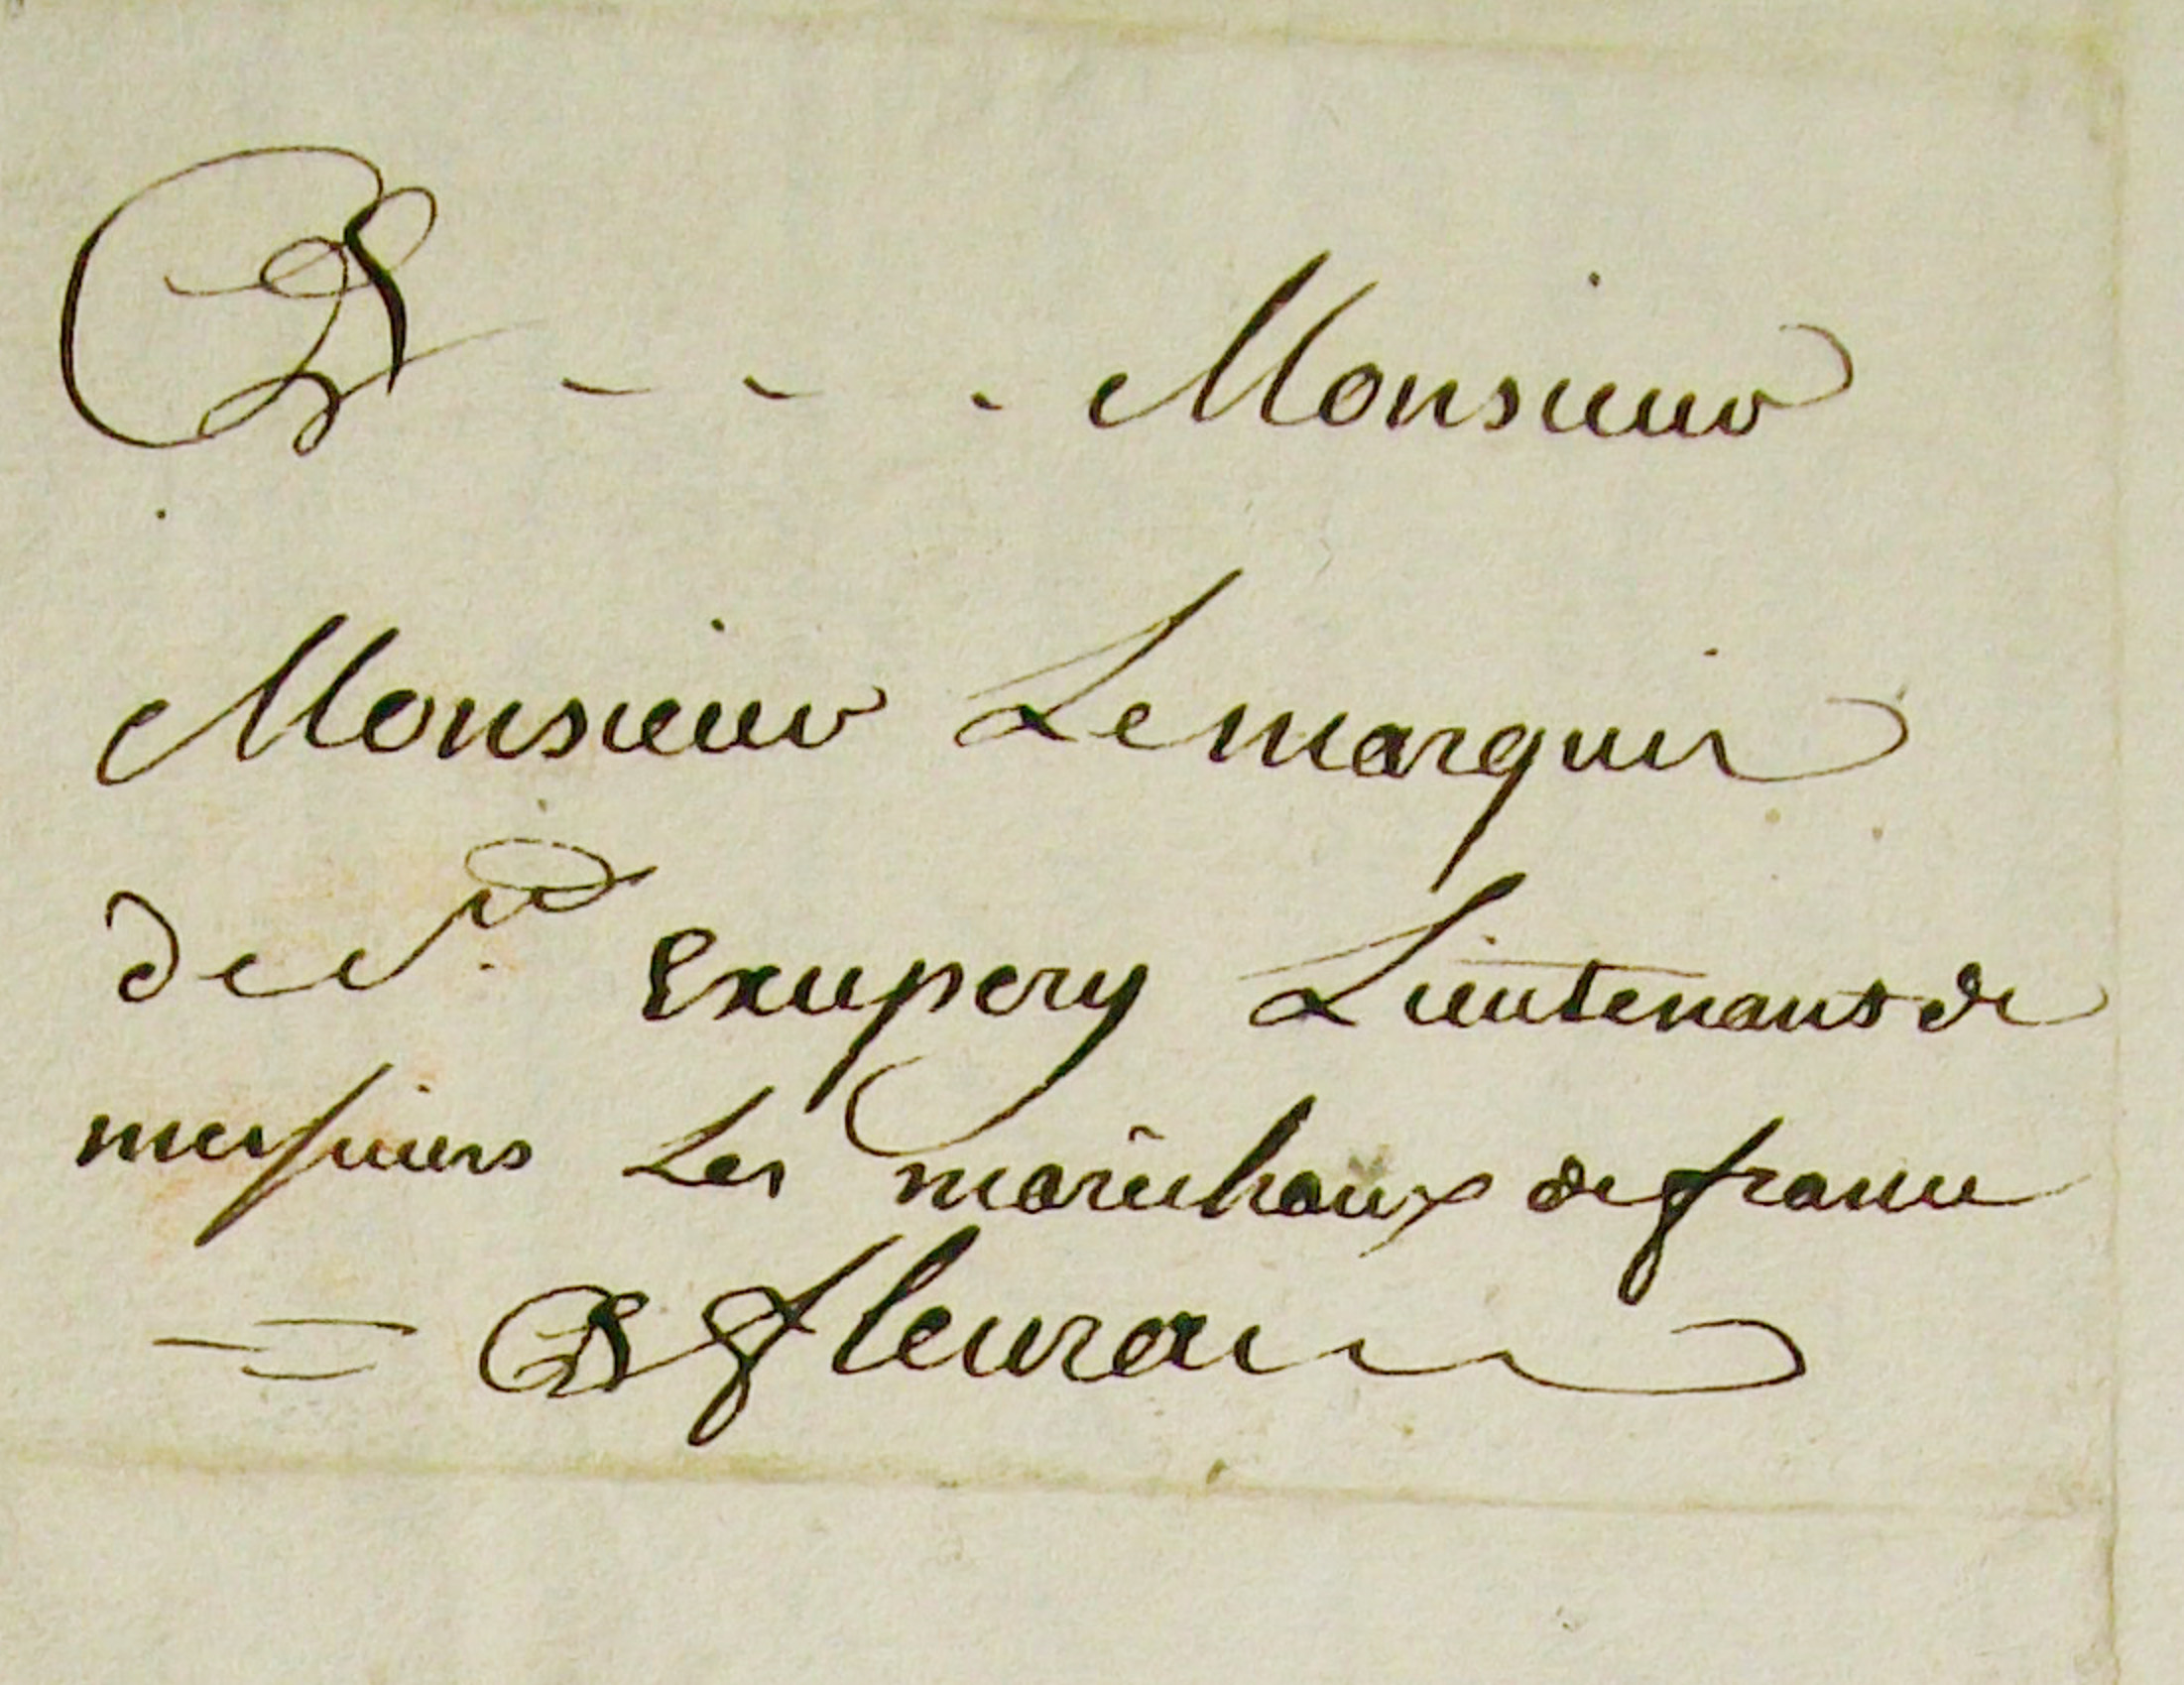 A - - - Monsieur
Monsieur Lemarquis
de St. Exupery Lieutenant de
messieurs Les maréchaux de france
A fleurance